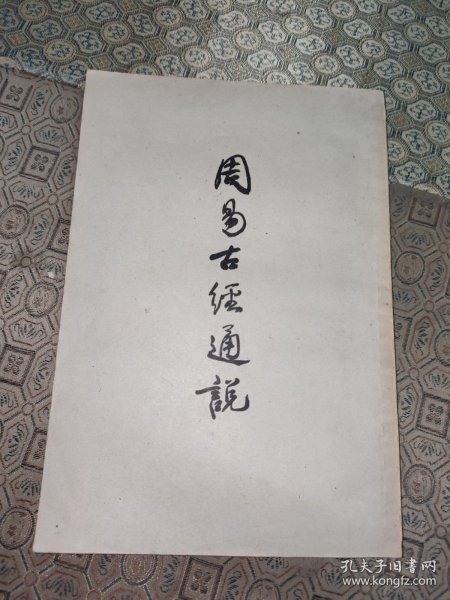 周易古經通說
孔夫子旧书网
www.kongfz.com